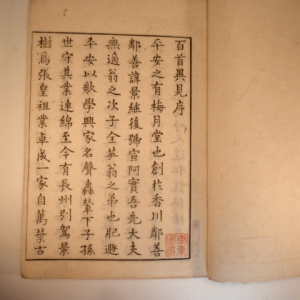 百首異見序
平安之有梅月堂也創於香川鄰善
鄰善諱景繼後號宣阿實吾先大夫
無適翁之次子全英翁之弟也肥遯
平安以歌學興家名聲轟輦下子孫
世守其業連綿至今有長州別駕景
樹為張皇祖業卓成一家自萬葉古